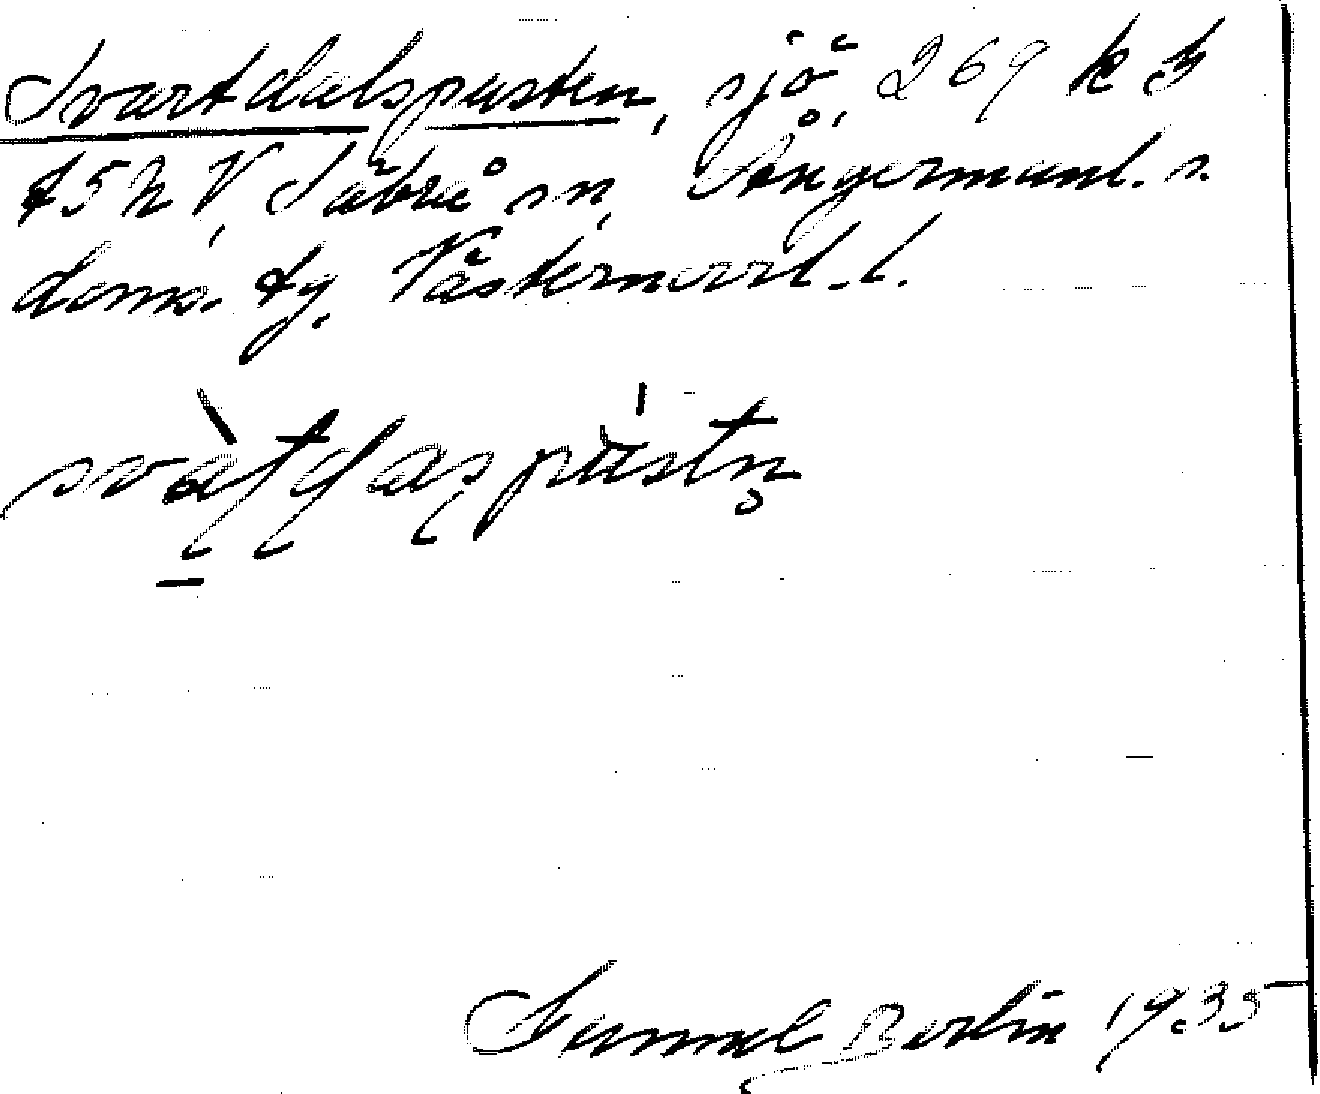 Svartdalspusten, sjö, 269 k 3
f 5 h V, Säbrå sn, Ångermanl. s.
doms. tg, Västernorrl. l.
svàʈɖaʂpu̍stn̥
Samuel Berlin 1935